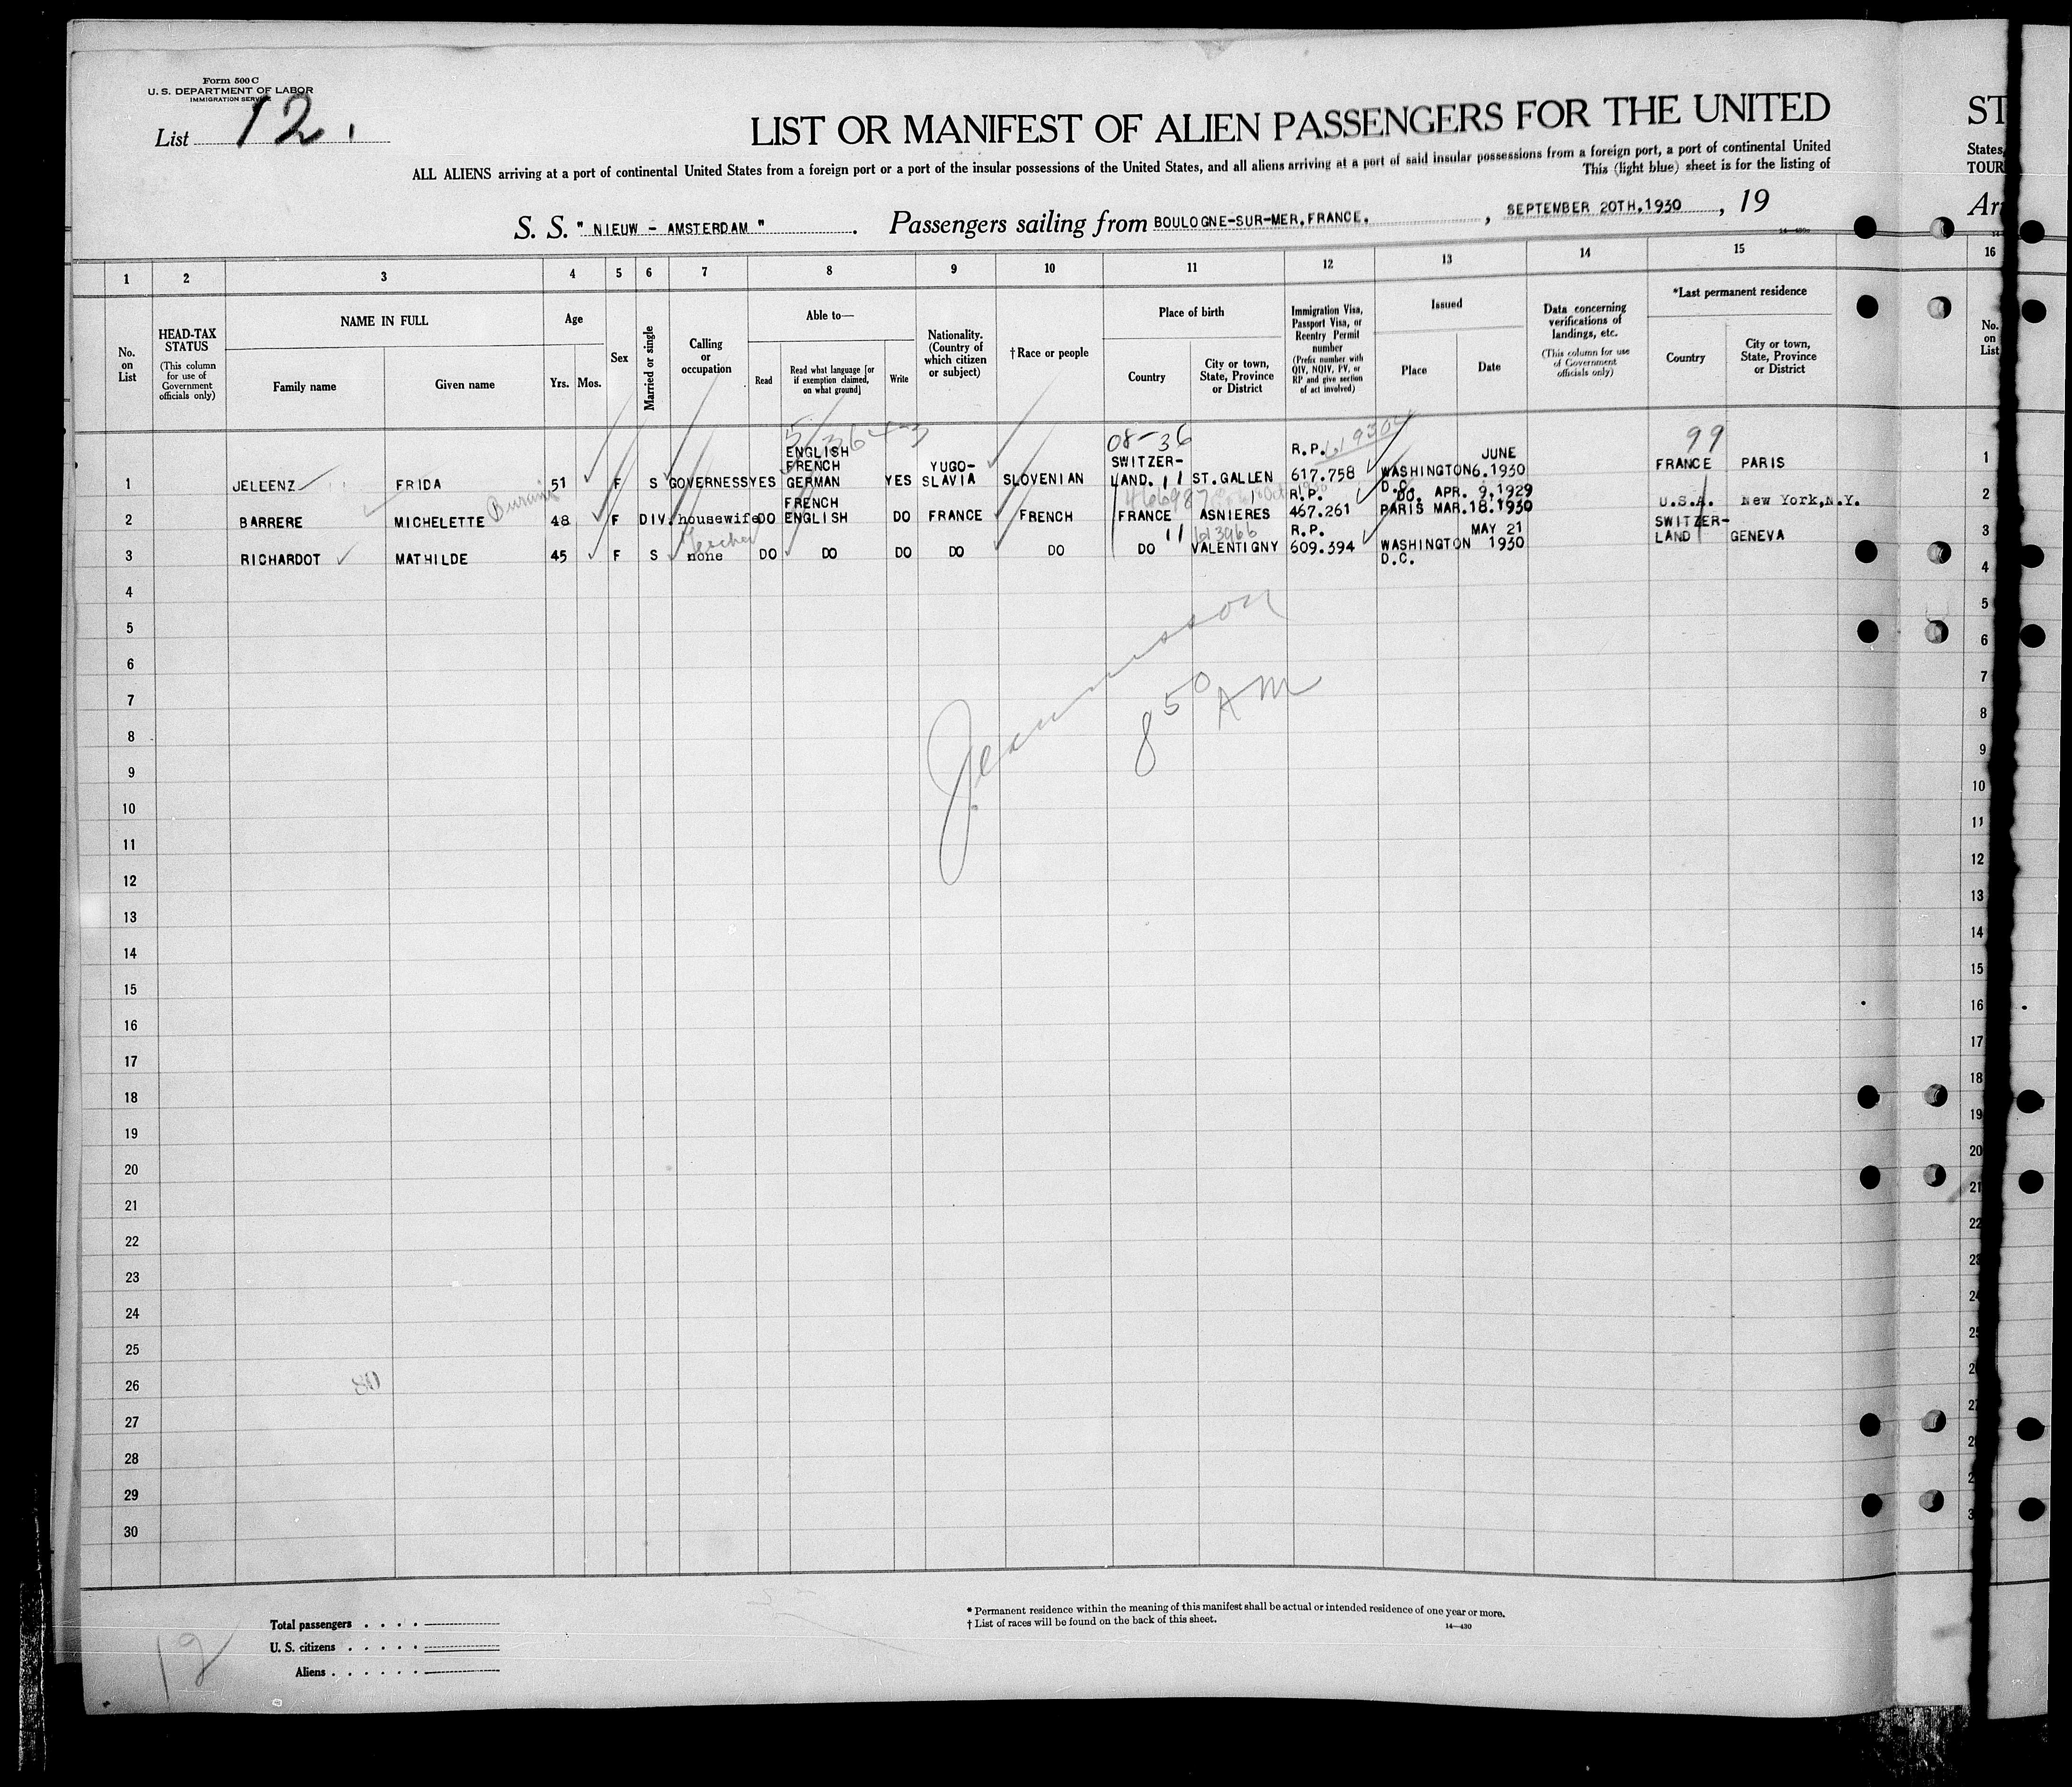 Form 500 C
U. S. DEPARTMENT OF LABOR
IMMIGRATION SERVICE
List 12.
LIST OR MANIFEST OF ALIEN PASSENGERS FOR THE UNITED
ST
ALL ALIENS arriving at a port of continental United States from a foreign port or a port of the insular possessions of the United States, and all aliens arriving at a port of said insular possessions from a foreign port, a port of continental United
States,
This (light blue) sheet is for the listing of
TOUR
S. S. " NIEUW - AMSTERDAM " . Passengers sailing from BOULOGNE-SUR-MER, FRANCE. , SEPTEMBER 20TH, 1930 , 19
Ar
1 2 3 4 5 6 7 8 9 10 11 12 13 14 15 16
No. on List
HEAD-TAX STATUS
(This column for use of Government officials only)
NAME IN FULL
Family name
Given name
Age
Yrs. Mos.
Sex
Married or single
Calling or occupation
Able to—
Read
Read what language [or if exemption claimed, on what ground]
Write
Nationality. (Country of which citizen or subject)
†Race or people
Place of birth
Country
City or town, State, Province or District
Immigration Visa, Passport Visa, or Reentry Permit number
(Prefix number with QIV, NQIV, PV, or RP and give section of act involved)
Issued
Place
Date
Data concerning verifications of landings, etc.
(This column for use of Government officials only)
*Last permanent residence
Country
City or town, State, Province or District
No. on List
5/364-3
08-36
619304
99
1 JELLENZ FRIDA 51 F S GOVERNESS YES ENGLISH FRENCH GERMAN YES YUGO-SLAVIA SLOVENIAN SWITZER-LAND. ST. GALLEN R.P. 617.758 WASHINGTON D.C. JUNE 6.1930 FRANCE PARIS 1
466987
2 BARRERE MICHELETTE 48 F DIV. housewife DO FRENCH ENGLISH DO FRANCE FRENCH FRANCE ASNIERES R.P. 467.261 DO. APR. 9,1929 PARIS MAR.18.1930 U.S.A. New York,N.Y. 2
Teacher
11 613966
3 RICHARDOT MATHILDE 45 F S none DO DO DO DO DO DO VALENTIGNY R.P. 609.394 WASHINGTON D.C. MAY 21 1930 SWITZER-LAND GENEVA 3
4 4
5 5
6 6
7 7
8 8
9 9
10 10
11 11
12 12
13 13
14 14
15 15
16 16
17 17
18 18
19 19
20 20
21 21
22 22
23 23
24
25
26
27
28
29
30
8 50 AM
80
Total passengers
U. S. citizens
Aliens
12
* Permanent residence within the meaning of this manifest shall be actual or intended residence of one year or more.
† List of races will be found on the back of this sheet.
14—430